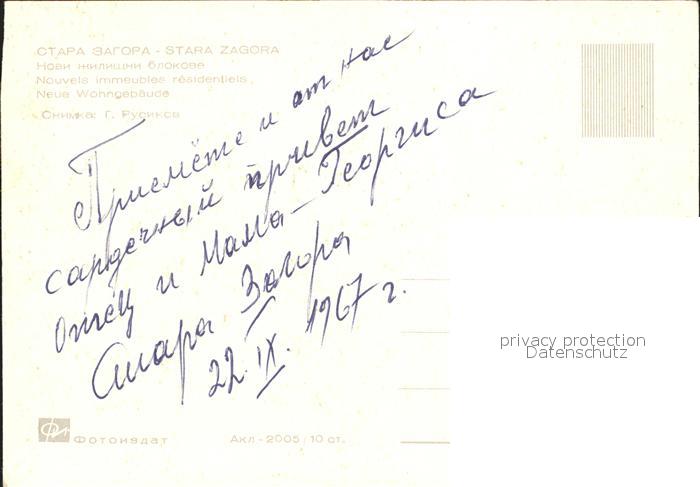 СТАРА ЗАГОРА - STARA ZAGORA
Нови жилищни блокове
Nouvels immeubles résidentiels
Neue Wohngebäude
Снимка: Г. Русинов
Приемёте и от нас
сардечный привет
Отец и Мама - Георгиса
Стара Загора
22. IX. 1967 г.
privacy protection
Datenschutz
Фотоиздат
Акл-2005/10 ст.